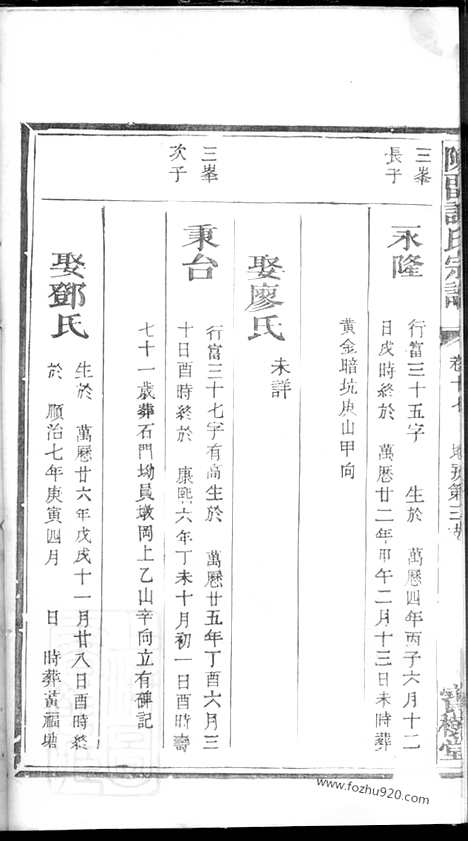 三峯
長子
永隆
行富三十五字 生於 萬曆四年丙子六月十二
日戌時終於 萬曆廿二年甲午二月十三日未時葬
黃金暗坑庚山甲向
娶廖氏
未詳
三峯
次子
秉台
行富三十七字有高生於 萬曆廿五年丁酉六月三
十日酉時終於 康熙六年丁未十月初一日酉時壽
七十一歲葬石門坳員墩岡上乙山辛向立有碑記
娶鄧氏
生於 萬曆廿六年戊戌十一月廿八日酉時終
於 順治七年庚寅四月 日 時葬黃福塘
氏宗譜
卷十七
www.fozhu920.com